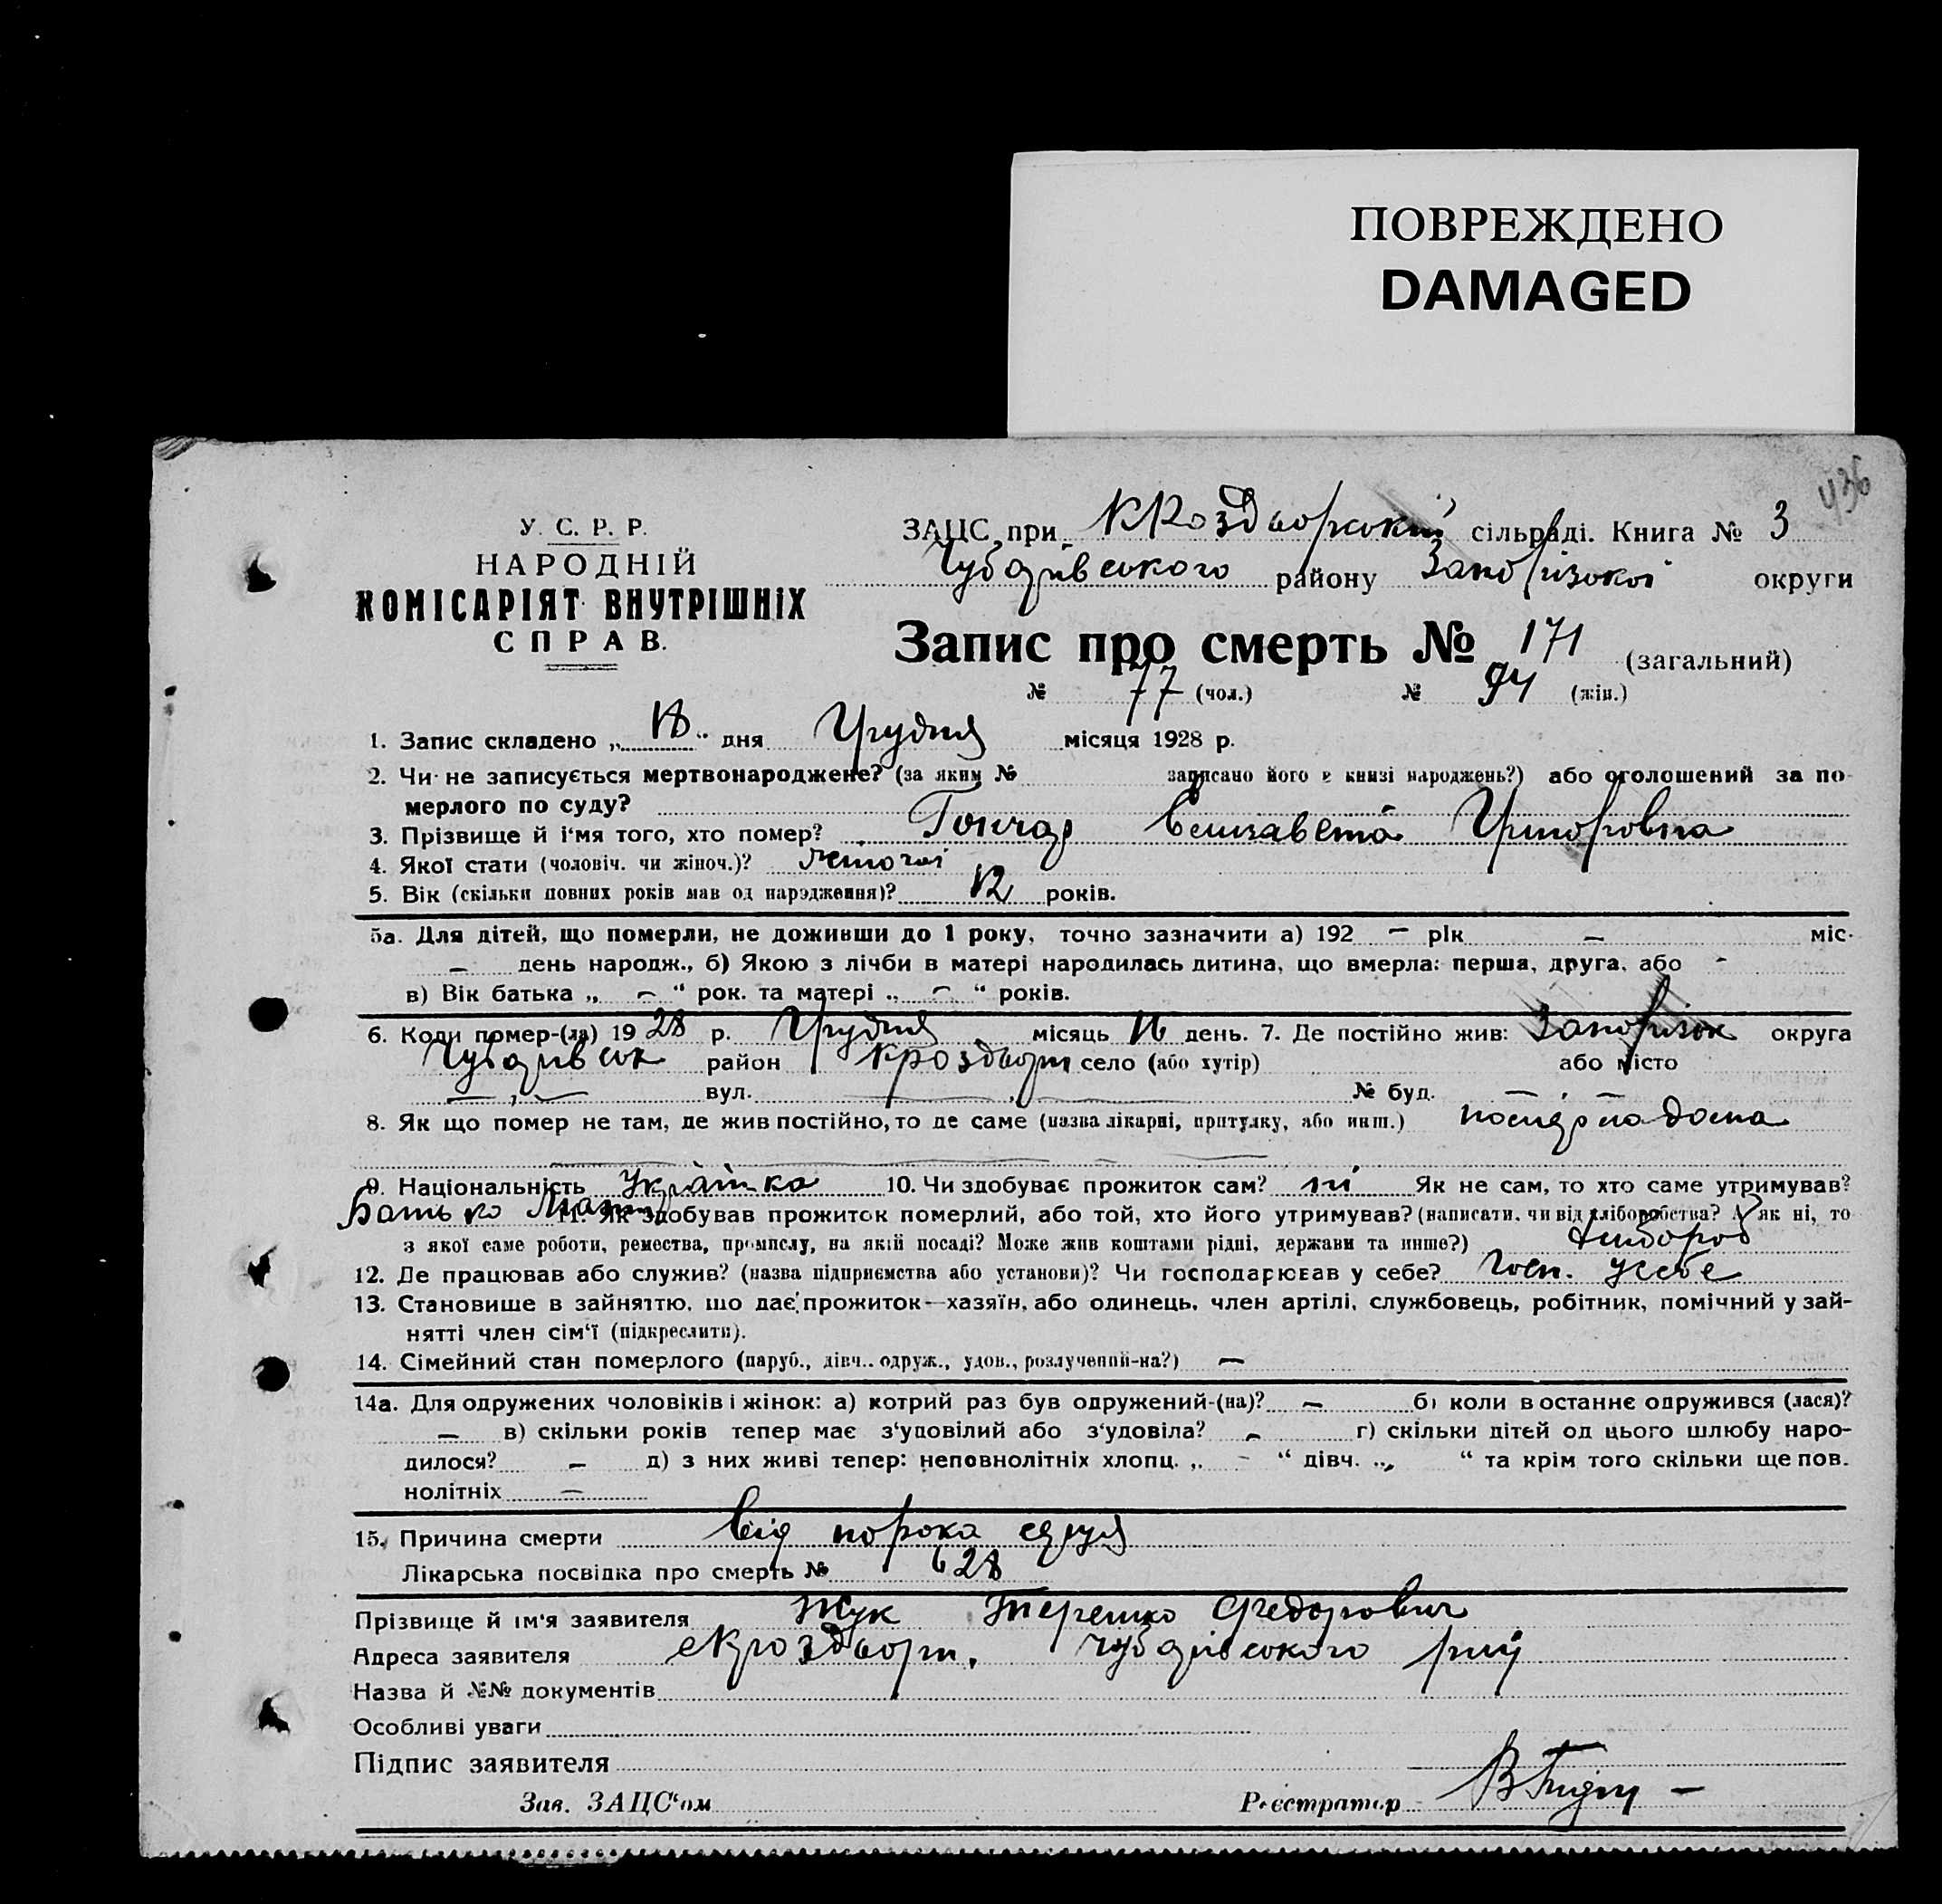 ПОВРЕЖДЕНО
DAMAGED
436
У. С. Р. Р.
НАРОДНІЙ
КОМІСАРІЯТ ВНУТРІШНІХ
СПРАВ.
ЗАЦС при сільраді. Книга № 3
Чубарівського району Запорізької округи
Запис про смерть № 171 (загальний)
№ 77 (чол.) № 94 (жін.)
1. Запис складено „18“ дня Грудня місяця 1928 р.
2. Чи не записується мертвонароджене? (за яким № записано його в книзі народжень?) або оголошений за по-
мерлого по суду?
3. Прізвище й і‘мя того, хто помер? Гончар Єлизавета Григоровна
4. Якої стати (чоловіч. чи жіноч.)? жіночої
5. Вік (скільки повних років мав од народження)? 12 років.
5а. Для дітей, що померли, не доживши до 1 року, точно зазначити а) 192 — рік — міс.
— день народж., б) Якою з лічби в матері народилась дитина, що вмерла: перша, друга, або -
в) Вік батька „ — “ рок. та матері „ — “ років.
6. Коли помер-(ла) 1928 р. Грудня місяць 16 день. 7. Де постійно жив: Запоріжок округа
Чубарівськ район село (або хутір) або місто
вул. № буд. —
8. Як що помер не там, де жив постійно, то де саме (назва лікарні, притулку, або инш.) дома
9. Національність Українка 10. Чи здобуває прожиток сам? ні Як не сам, то хто саме утримував?
Батько Мати 11. Як здобував прожиток померлий, або той, хто його утримував? (написати, чи від хліборобства? А як ні, то
з якої саме роботи, ремества, промислу, на якій посаді? Може жив коштами рідні, держави та инше?) хлібороб
12. Де працював або служив? (назва підприємства або установи)? Чи господарював у себе? Госп. у себе
13. Становише в зайняттю, що дає прожиток—хазяїн, або одинець, член артілі, службовець, робітник, помічний у зай-
нятті член сім‘ї (підкреслити).
14. Сімейний стан померлого (паруб., дівч., одруж., удов., розлучений-на?) —
14а. Для одружених чоловіків і жінок: а) котрий раз був одружений-(на)? — б) коли в останнє одружився (лася)?
— в) скільки років тепер має з‘удовілий або з‘удовіла? - г) скільки дітей од цього шлюбу наро-
дилося? — д) з них живі тепер: неповнолітніх хлопц. „ - “ дівч. „ “ та крім того скільки ще пов.
нолітніх —
15. Причина смерти від порока серця
Лікарська посвідка про смерть № 628
Прізвище й ім‘я заявителя Жук Терешко Федорович
Адреса заявителя Чубарівського
Назва й №№ документів
Особливі уваги
Підпис заявителя
Зав. ЗАЦС‘ом Реєстратор